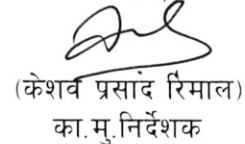 (केशव प्रसाद रिमाल)
का.मु.निर्देशक